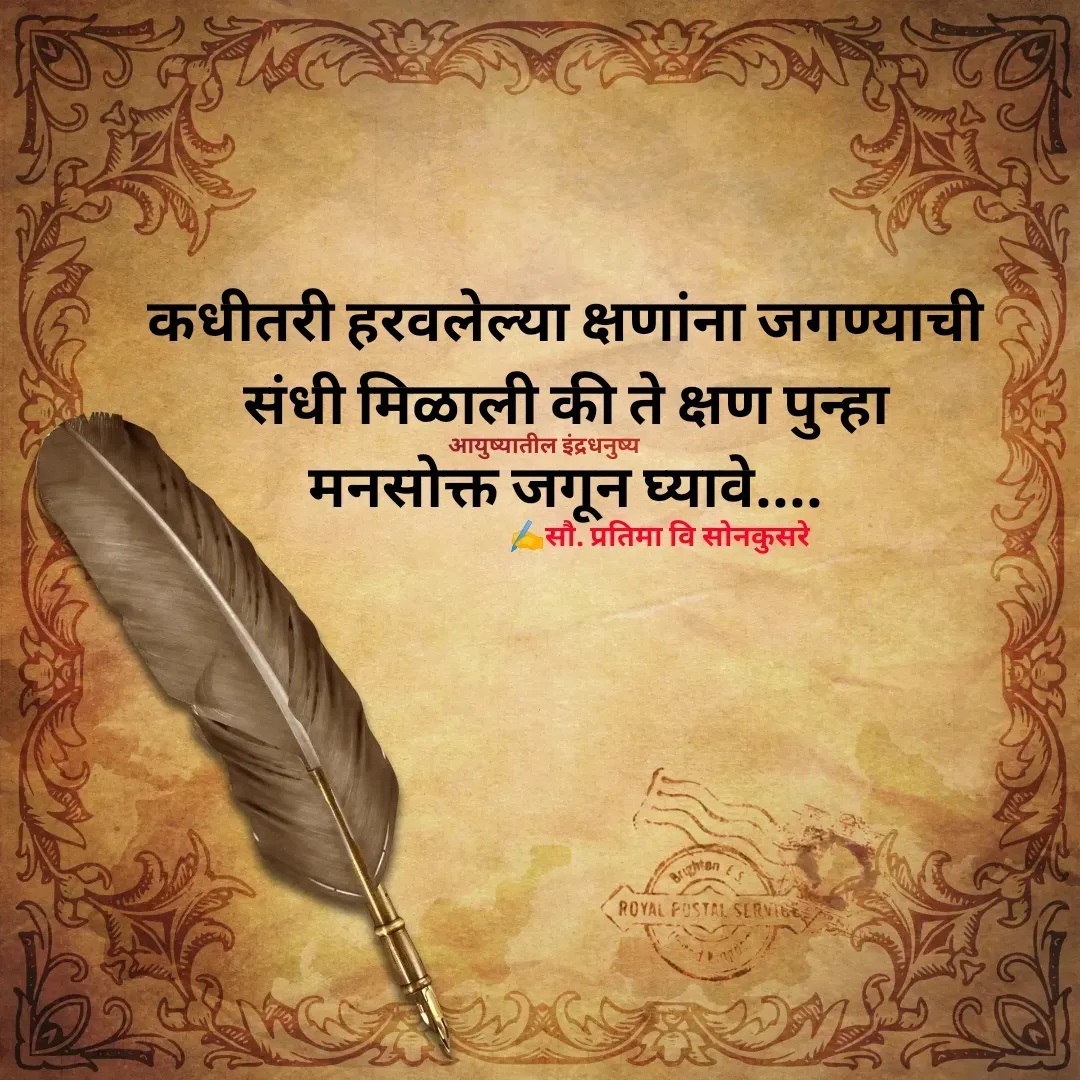 कधीतरी हरवलेल्या क्षणांना जगण्याची
संधी मिळाली की ते क्षण पुन्हा
आयुष्यातील इंद्रधनुष्य
मनसोक्त जगून घ्यावे....
✍️सौ. प्रतिमा वि सोनकुसरे
Brighton E.S.
ROYAL POSTAL SERVICE